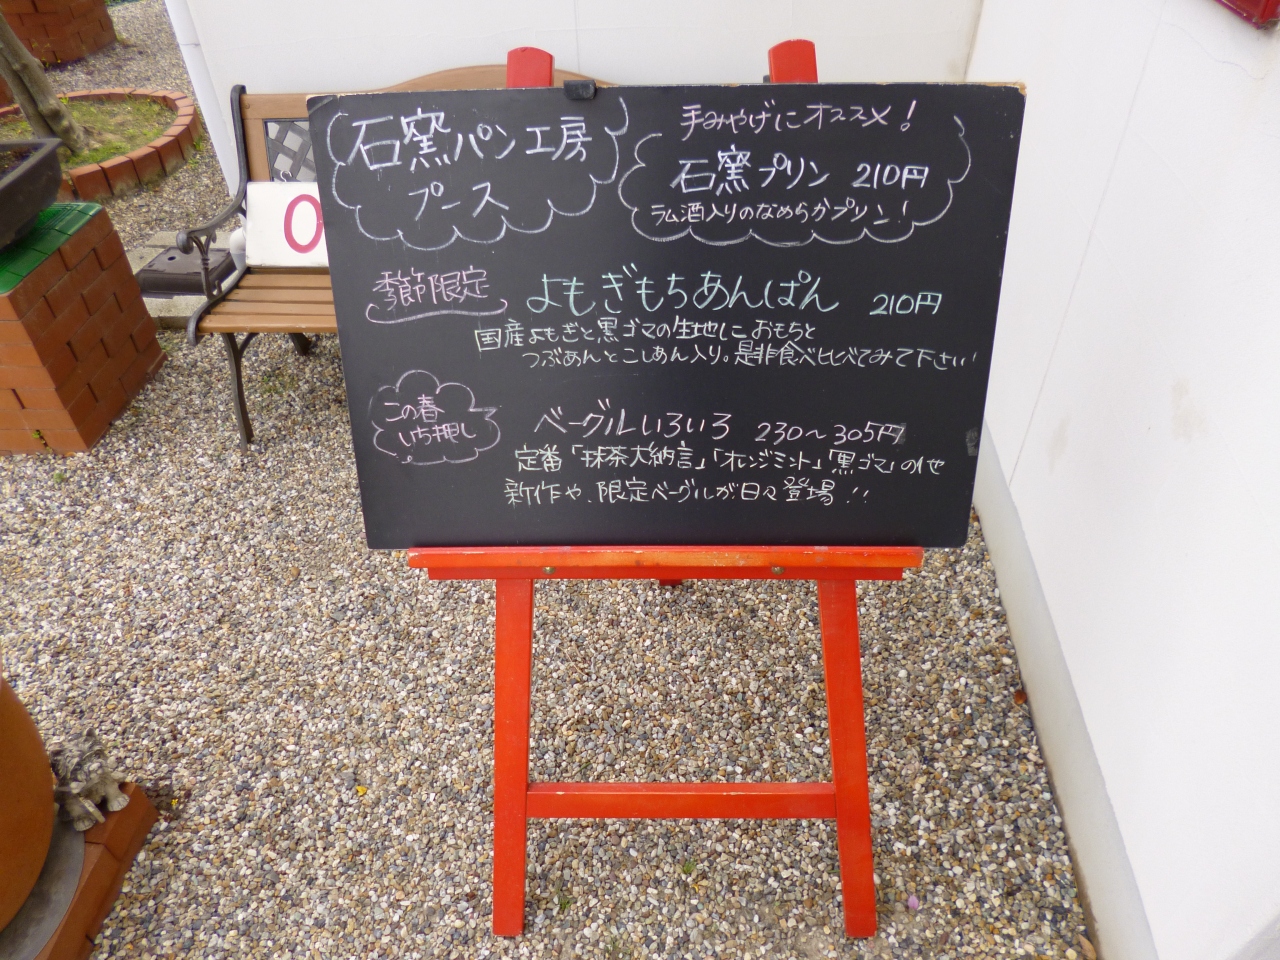 石窯パン工房
プース
手みやげにオススメ!
石窯プリン 210円
ラム酒入りのなめらかプリン!
季節限定
よもぎもちあんぱん 210円
国産よもぎと黒ゴマの生地におもちと
つぶあんとこしあん入り。是非食べ比べてみて下さい
この春
いち押し
ベーグルいろいろ 230〜305円
定番「抹茶大納言」「オレンジミント」「黒ゴマ」の他
新作や、限定ベーグルが日々登場!!